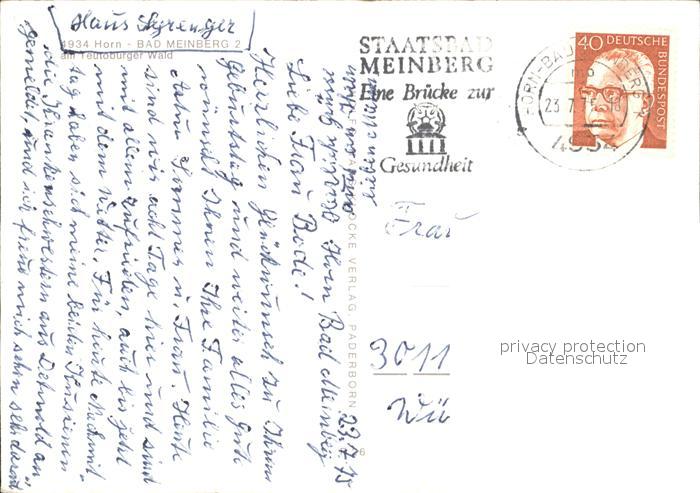 Haus Sprenger
4934 Horn - BAD MEINBERG 2
am Teutoburger Wald
STAATSBAD
MEINBERG
Eine Brücke zur
Gesundheit
HORN-BAD MEINBERG
23.7.75-18
4934
40 DEUTSCHE
BUNDESPOST
Horn Bad Meinberg 23.7.75
Liebe Frau Bode!
Herzlichen Glückwunsch zu Ihrem
Geburtstag und weiter alles Gute
wünscht Ihnen Ihre Familie
u. Frau. Heute
sind wir acht Tage hier und sind
mit allem zufrieden, auch bis jetzt
mit dem Wetter. Für heute Nachmit-
tag haben sich meine beiden Kusinen
die Krankenschwestern aus Detmold an
gemeldet, und ich freue mich sehr sehr darauf
VERLAG PADERBORN
Frau
3011
privacy protection
Datenschutz